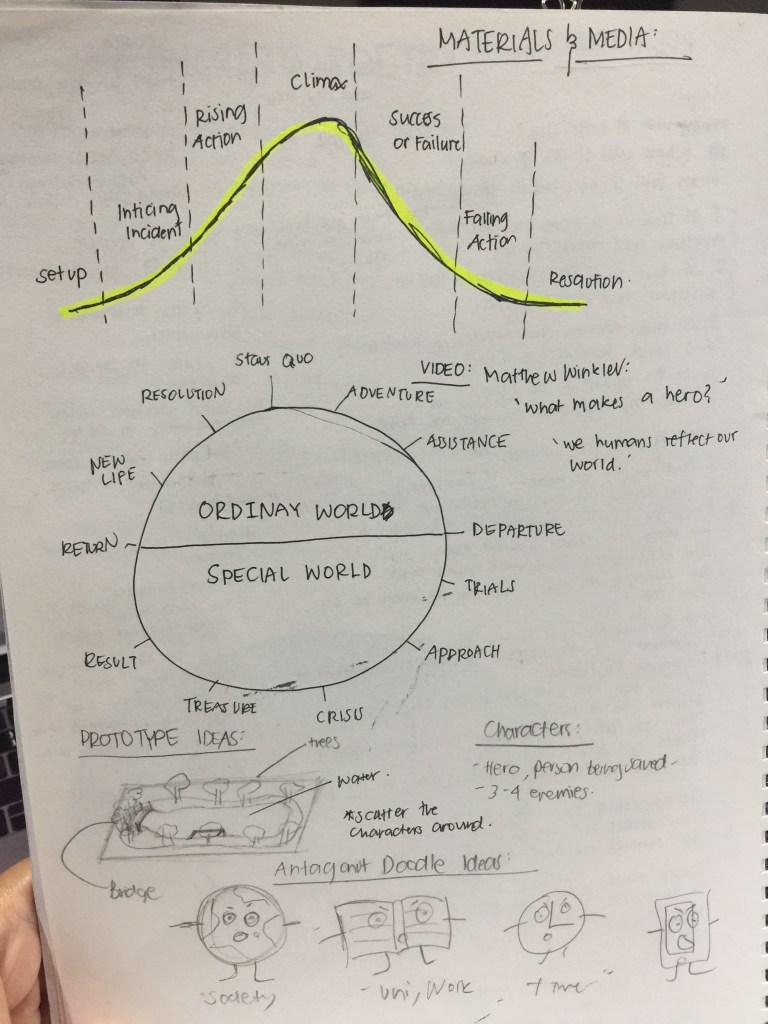 MATERIALS & MEDIA:
Climax
Rising
Action
Succes
or Failure
Inticing
Incident
Falling
Action
Setup
Resolution.
Staus Quo
VIDEO: Matthew Winkler:
RESOLUTION
ADVENTURE
'what makes a hero?'
ASSISTANCE
'we humans reflect our
world.'
NEW
LIFE
ORDINAY WORLD
RETURN
DEPARTURE
SPECIAL WORLD
TRIALS
RESULT
APPROACH
TREASURE
CRISIS
PROTOTYPE IDEAS:
Characters:
trees
water.
- Hero, person being saved -
- 3-4 enemies.
*scatter the
characters around.
Bridge
Antagonist Doodle Ideas:
"Society
- Uni, Work
- Time"